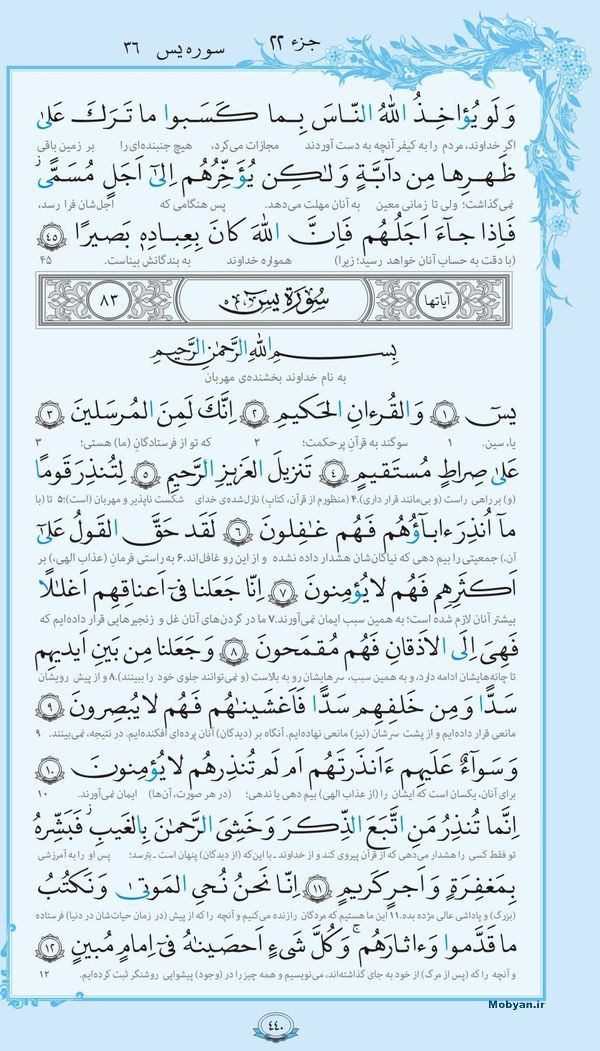 جزء ۲۲
سوره یس ۳۶
وَلَو يُؤاخِذُ اللهُ النّاسَ بِما كَسَبوا ما تَرَكَ عَلىٰ
اگر خداوند، مردم را به کیفر آنچه به دست آوردند مجازات می‌کرد، هیچ جنبنده‌ای را بر زمین باقی
ظَهرِها مِن دآبَّةٍ وَلٰكِن يُؤَخِّرُهُم اِلىٰٓ اَجَلٍ مُسَمًّى
نمی‌گذاشت؛ ولی تا زمانی معین به آنان مهلت می‌دهد. پس هنگامی که اجل‌شان فرا رسد،
فَاِذا جآءَ اَجَلُهُم فَاِنَّ اللهَ كانَ بِعِبادِهٖ بَصيرًا ﴿۴۵﴾
(با دقت به حساب آنان خواهد رسید؛ زیرا) همواره خداوند به بندگانش بیناست. ۴۵
آیاتها
سُورَةُ يس
۸۳
بِسمِ اللهِ الرَّحمٰنِ الرَّحيمِ
به نام خداوند بخشنده‌ی مهربان
يسٓ ﴿۱﴾ وَالقُرءانِ الحَكيمِ ﴿۲﴾ اِنَّكَ لَمِنَ المُرسَلينَ ﴿۳﴾
یا، سین. ۱ سوگند به قرآنِ پرحکمت؛ ۲ که تو از فرستادگانِ (ما) هستی؛ ۳
عَلىٰ صِراطٍ مُستَقيمٍ ﴿۴﴾ تَنزيلَ العَزيزِ الرَّحيمِ ﴿۵﴾ لِتُنذِرَ قَومًا
(و) بر راهی راست (و بی‌مانند قرار داری).۴ (منظورم از قرآن، کتابِ) نازل‌شده‌ی خدای شکست ناپذیر و مهربان (است)؛۵ تا (با
مآ اُنذِرَ ءابآؤُهُم فَهُم غٰفِلونَ ﴿۶﴾ لَقَد حَقَّ القَولُ عَلىٰٓ
آن،) جمعیتی را بیم دهی که نیاکان‌شان هشدار داده نشده و از این رو غافل‌اند.۶ به راستی فرمانِ (عذاب الهی،) بر
اَكثَرِهِم فَهُم لا يُؤمِنونَ ﴿۷﴾ اِنّا جَعَلنا فىٓ اَعناقِهِم اَغلٰلًا
بیشتر آنان لازم شده است؛ به همین سبب ایمان نمی‌آورند.۷ ما در گردن‌های آنان غل و زنجیرهایی قرار داده‌ایم که
فَهِىَ اِلَى الاَذقانِ فَهُم مُقمَحونَ ﴿۸﴾ وَجَعَلنا مِن بَينِ اَيديهِم
تا چانه‌هایشان ادامه دارد، و به همین سبب، سرهایشان رو به بالاست (و نمی‌توانند جلوی خود را ببینند).۸ و از پیش رویشان
سَدًّا وَمِن خَلفِهِم سَدًّا فَاَغشَينٰهُم فَهُم لا يُبصِرونَ ﴿۹﴾
مانعی قرار داده‌ایم و از پشت سرشان (نیز) مانعی نهاده‌ایم. آنگاه بر (دیدگان) آنان پرده‌ای افکنده‌ایم. در نتیجه، نمی‌بینند. ۹
وَسَوآءٌ عَلَيهِم ءَاَنذَرتَهُم اَم لَم تُنذِرهُم لا يُؤمِنونَ ﴿۱۰﴾
برای آنان، یکسان است که ایشان را (از عذاب الهی) بیم دهی یا ندهی؛ (در هر صورت، آن‌ها) ایمان نمی‌آورند. ۱۰
اِنَّما تُنذِرُ مَنِ اتَّبَعَ الذِّكرَ وَخَشِىَ الرَّحمٰنَ بِالغَيبِ ۖ فَبَشِّرهُ
تو فقط کسی را هشدار می‌دهی که از قرآن پیروی کند و از خداوند ـ با این‌که (از دیدگان) پنهان است ـ بترسد؛ پس او را به آمرزشی
بِمَغفِرَةٍ وَاَجرٍ كَريمٍ ﴿۱۱﴾ اِنّا نَحنُ نُحىِ المَوتىٰ وَنَكتُبُ
(بزرگ) و پاداشی عالی مژده بده.۱۱ این ما هستیم که مردگان را زنده می‌کنیم و آنچه را که از پیش (در زمان حیات‌شان در دنیا) فرستاده
ما قَدَّموا وَءاثارَهُم ۚ وَكُلَّ شَىءٍ اَحصَينٰهُ فىٓ اِمامٍ مُبينٍ ﴿۱۲﴾
و آنچه را که (پس از مرگ) از خود به جای گذاشته‌اند، می‌نویسیم و همه چیز را در (وجودِ) پیشوایی روشنگر ثبت کرده‌ایم. ۱۲
Mobyan.ir
۴۴۰